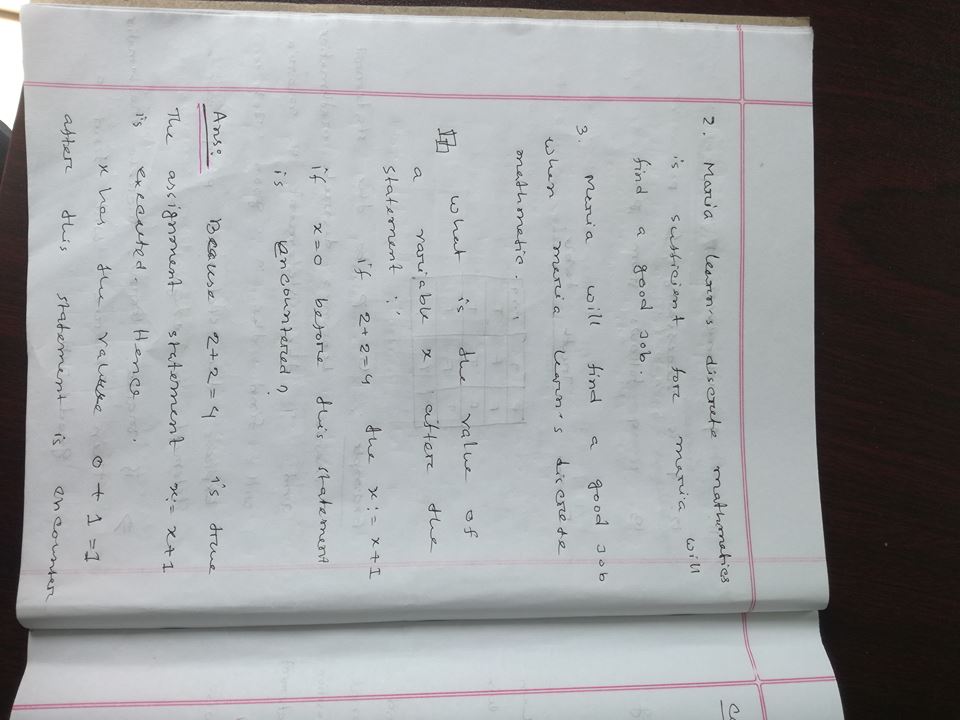 2. Maria learn's discrete mathmetics
is sufficient for maria will
find a good Job.
3. Maria will find a good Job
when maria learn's discrete
mathmetic.
What is the value of
a variable x after the
statement :
if 2+2=4 the x:= x+1
if x=0 before this statement
is encountered?
Ans: Because 2+2=4 is true
The assignment statement x:= x+1
is executed. Hence.
x has the value 0 + 1 =1
after this statement is encounter